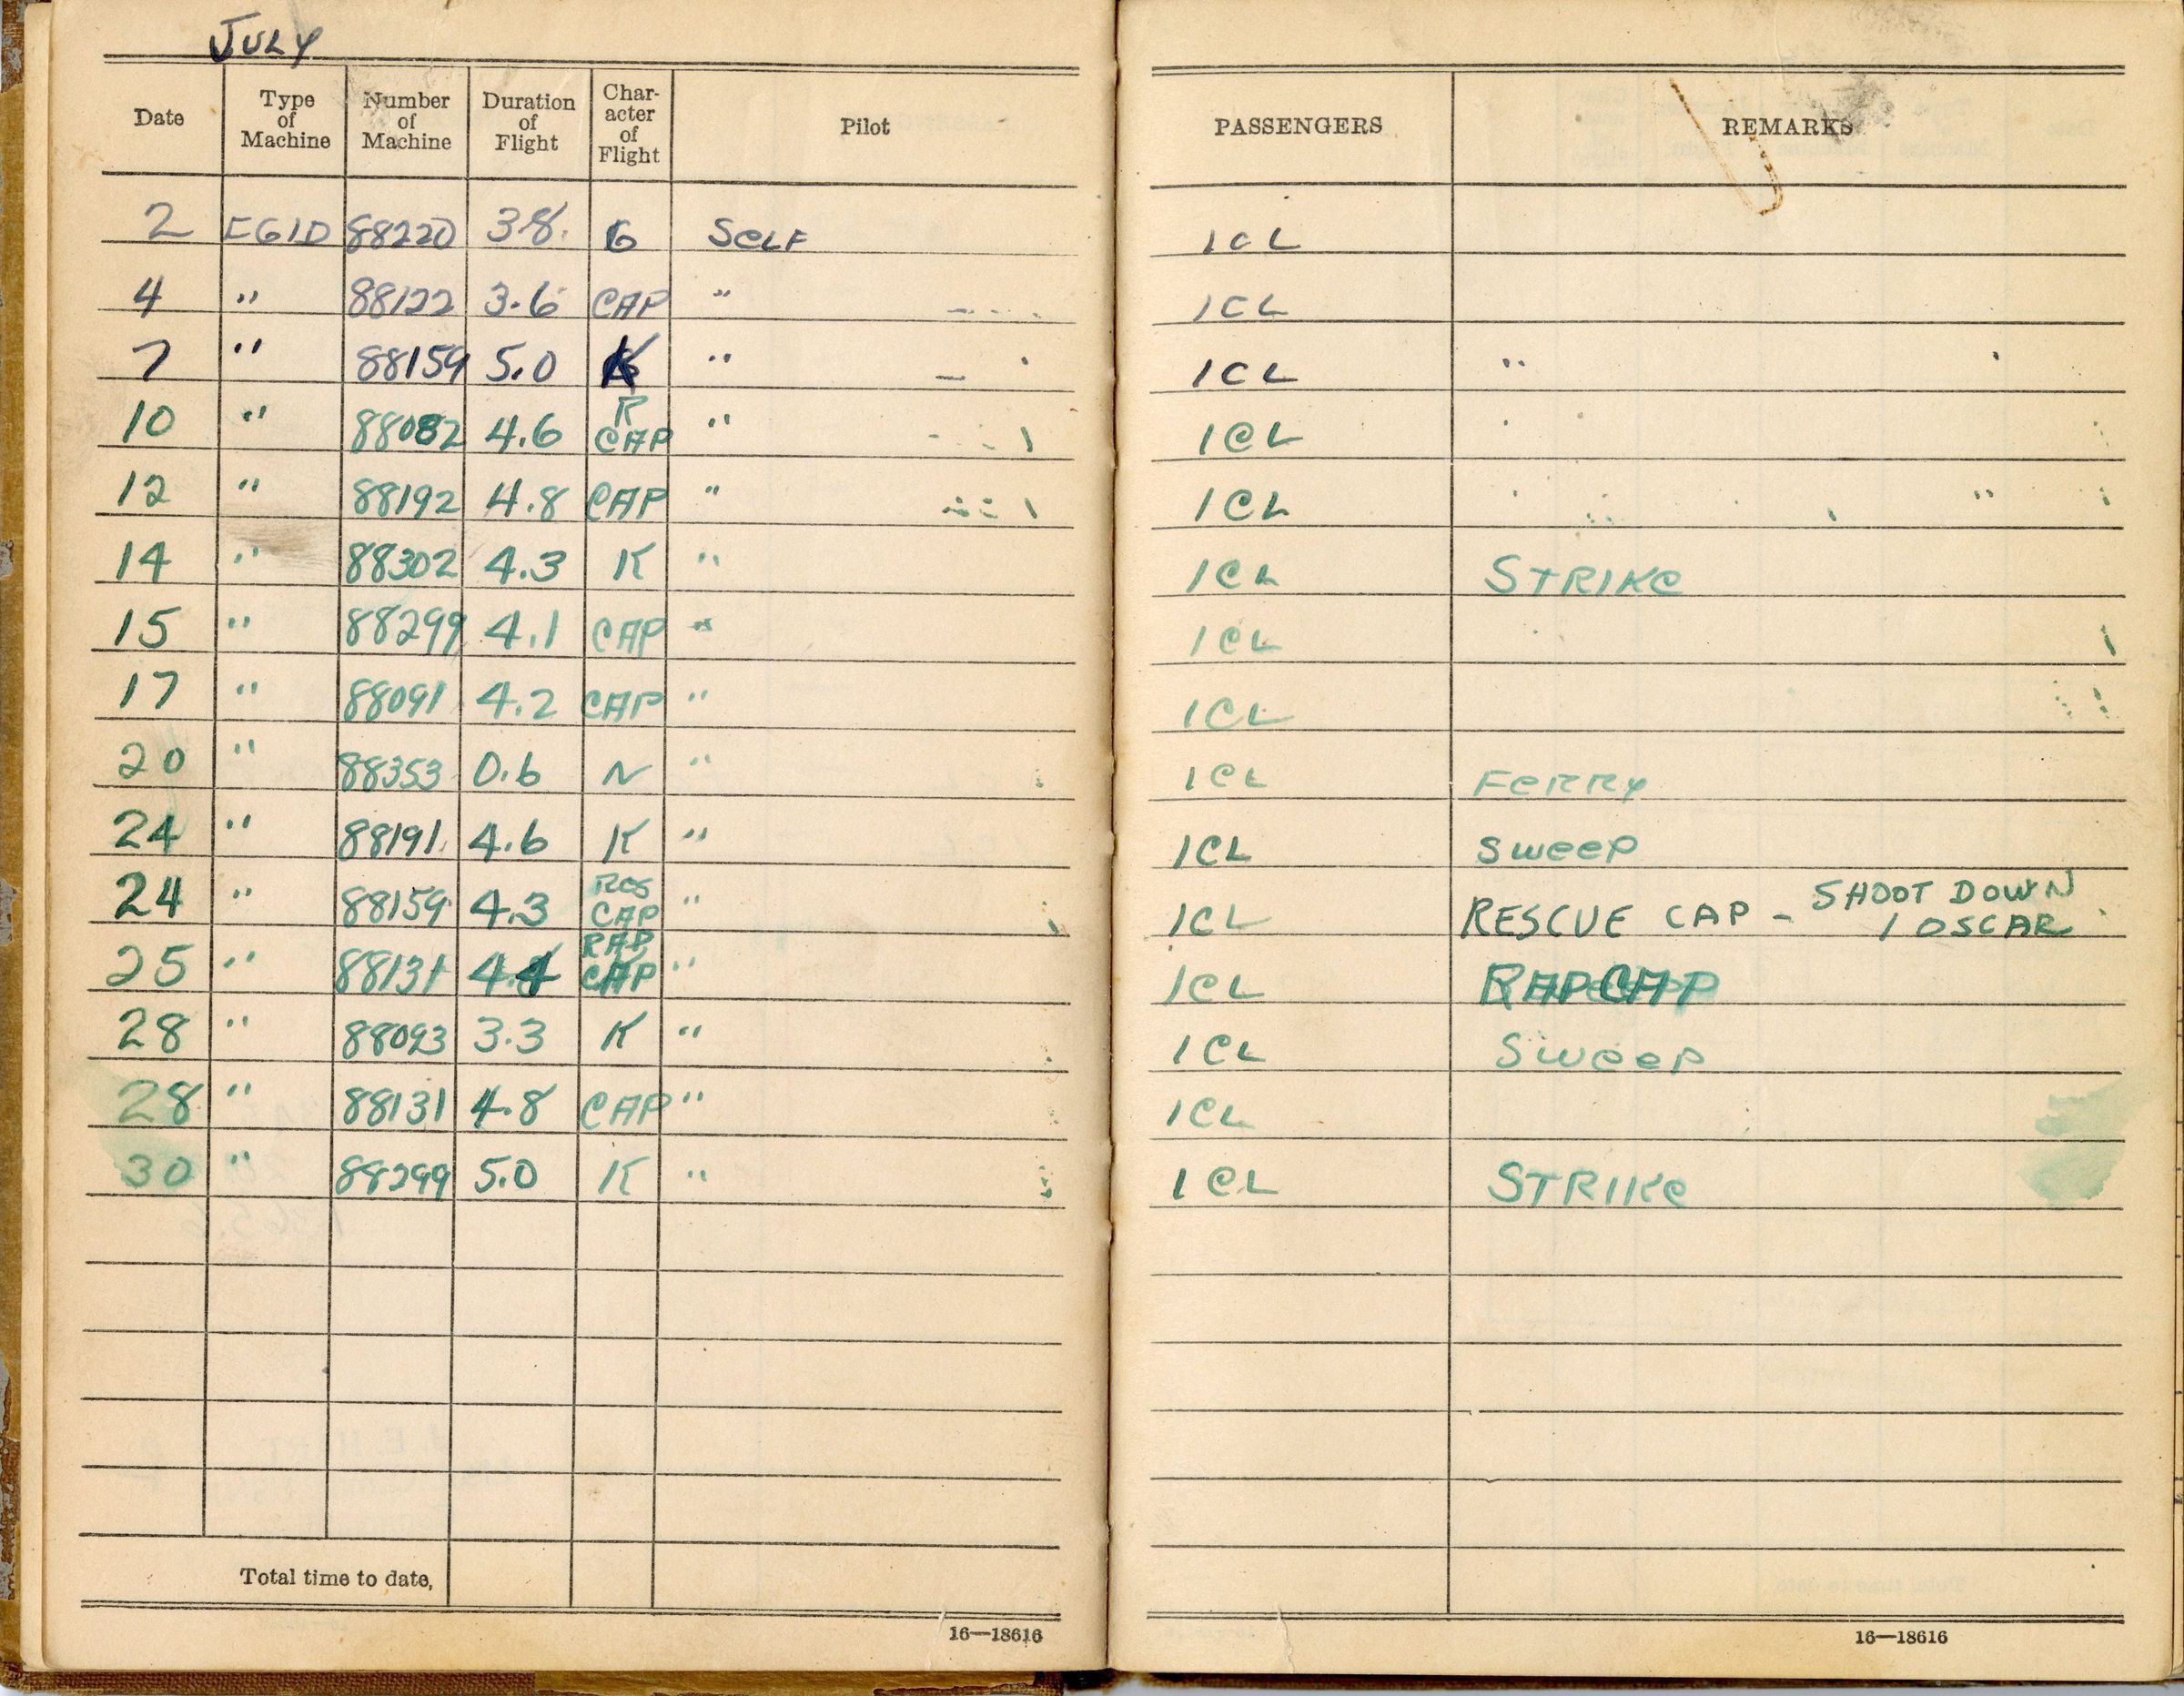 JULY
Date Type of Machine Number of Machine Duration of Flight Character of Flight Pilot PASSENGERS REMARKS
2 FG1D 88220 3.8 G SELF 1CL
4 " 88122 3.6 CAP " 1CL
7 " 88159 5.0 K " 1CL "
10 " 88082 4.6 R CAP " 1CL
12 " 88192 4.8 CAP " 1CL "
14 " 88302 4.3 K " 1CL STRIKe
15 " 88299 4.1 CAP " 1CL
17 " 88091 4.2 CAP " 1CL
20 " 88353 0.6 N " 1CL FeRRy
24 " 88191 4.6 K " 1CL Sweep
24 " 88159 4.3 Res CAP " 1CL RESCUE CAP - SHOOT DOWN 1 OSCAR
25 " 88131 4.4 RAP CAP " 1CL RAPCAP
28 " 88093 3.3 K " 1CL Sweep
28 " 88131 4.8 CAP " 1CL
30 " 88299 5.0 K " 1CL STRIKe
Total time to date,
16—18616 16—18616